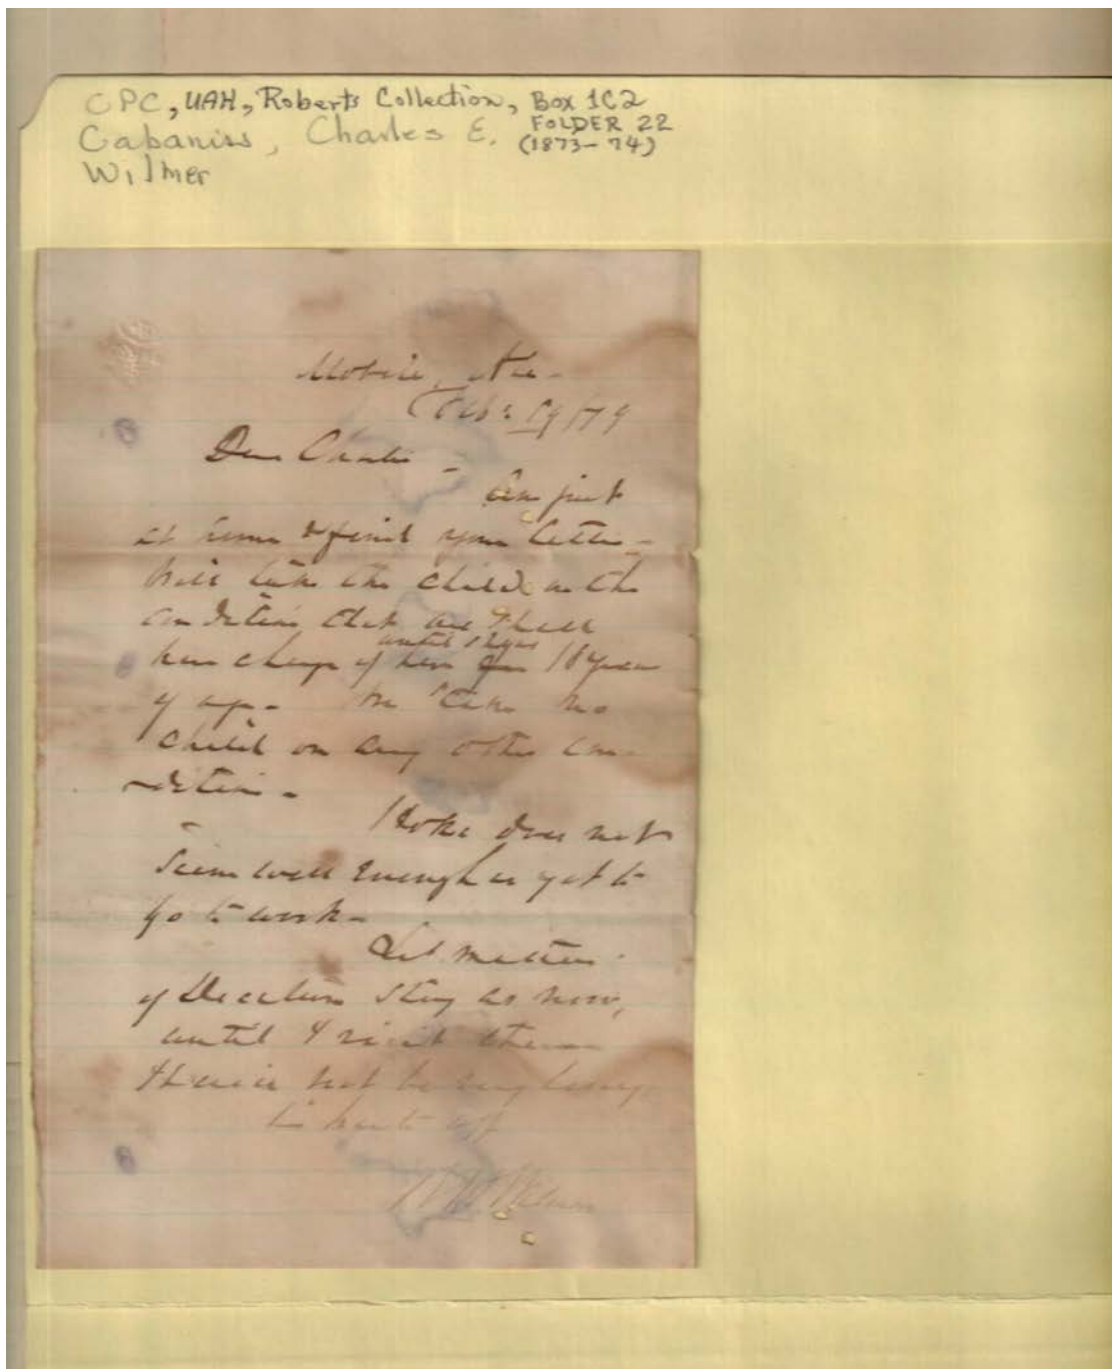 CPC, UAH, Roberts Collection, Box 1C2
Cabaniss, Charles E. FOLDER 22
(1873-74)
Wilmer
Mobile, Ala -
Feb: 19/79
Dear Charlie -
Am just
at home & find your letter -
Will take the child on the
condition that we shall
until 12 yrs
have charge of her 18 years
of age - We take no
child on any other con-
dition -
Hoke does not
seem well enough as yet to
go to work -
Let matters
of Decatur stay as now,
until I visit them
I will not be very long